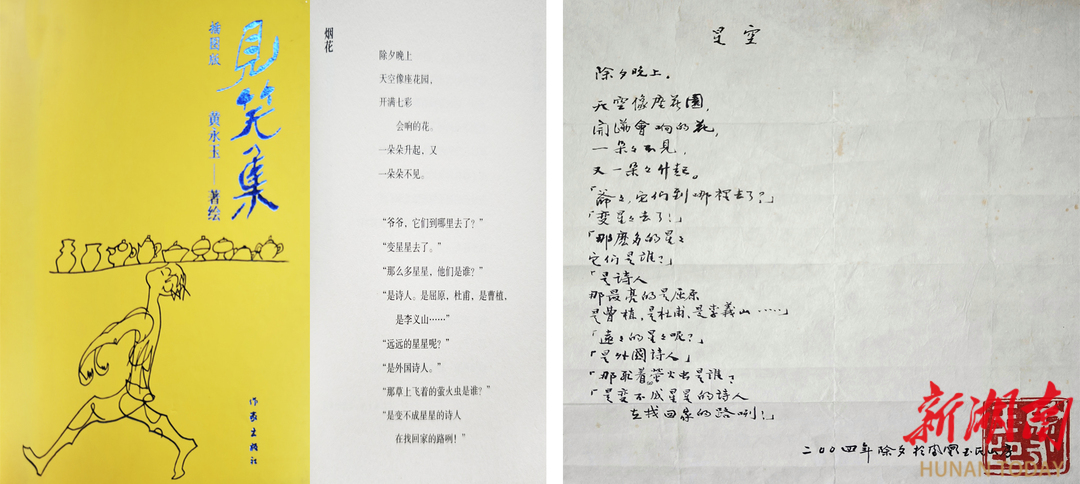 見笑集
插图版
黄永玉——著绘
作家出版社
烟花
除夕晚上
天空像座花园，
开满七彩
会响的花。
一朵朵升起，又
一朵朵不见。
“爷爷，它们到哪里去了？”
“变星星去了。”
“那么多星星，他们是谁？”
“是诗人。是屈原，杜甫，是曹植，
是李义山……”
“远远的星星呢？”
“是外国诗人。”
“那草上飞着的萤火虫是谁？”
“是变不成星星的诗人
在找回家的路咧！”
星空
除夕晚上。
天空像座花園，
開滿會响的花，
一朵々不見，
又一朵々升起。
「爺々，它们到哪裡去了？」
「变星々去了！」
「那麽多的星々
它们是誰？」
「是诗人
那最亮的是屈原
是曹植，是杜甫、是李義山……」
「遠々的星々呢？」
「是外國詩人」
「那飛着萤火虫是誰？
「是变不成星星的诗人
在找回家的路咧！」
二〇〇四年除夕於鳳凰玉氏山房
新湖南
HUNAN TODAY